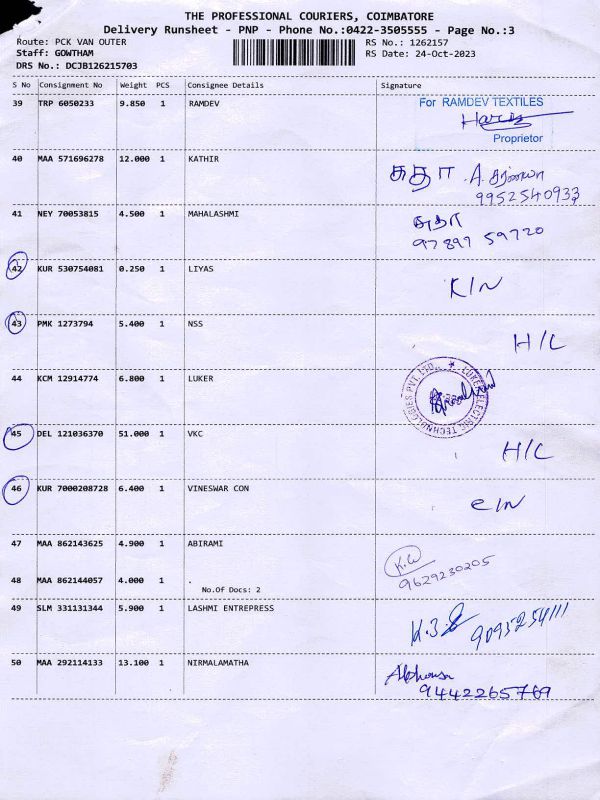 THE PROFESSIONAL COURIERS, COIMBATORE
Delivery Runsheet - PNP - Phone No.:0422-3505555 - Page No.:3
Route: PCK VAN OUTER RS No.: 1262157
Staff: GOWTHAM RS Date: 24-Oct-2023
DRS No.: DCJB126215703
S No Consignment No Weight PCS Consignee Details Signature
39 TRP 6050233 9.850 1 RAMDEV
For RAMDEV TEXTILES
Proprietor
40 MAA 571696278 12.000 1 KATHIR
சுதா A.
9952540933
41 NEY 70053815 4.500 1 MAHALASHMI
சுதா
97897 59720
42 KUR 530754081 0.250 1 LIYAS K/N
43 PMK 1273794 5.400 1 NSS H/L
44 KCM 12914774 6.800 1 LUKER
LUKER ELECTRIC TECHNOLOGIES PVT.LTD.,
45 DEL 121036370 51.000 1 VKC H/L
46 KUR 7000208728 6.400 1 VINESWAR CON C/N
47 MAA 862143625 4.900 1 ABIRAMI
9629230205
48 MAA 862144057 4.000 1 .
No.Of Docs: 2
49 SLM 331131344 5.900 1 LASHMI ENTREPRESS
9095254111
50 MAA 292114133 13.100 1 NIRMALAMATHA
9442265769